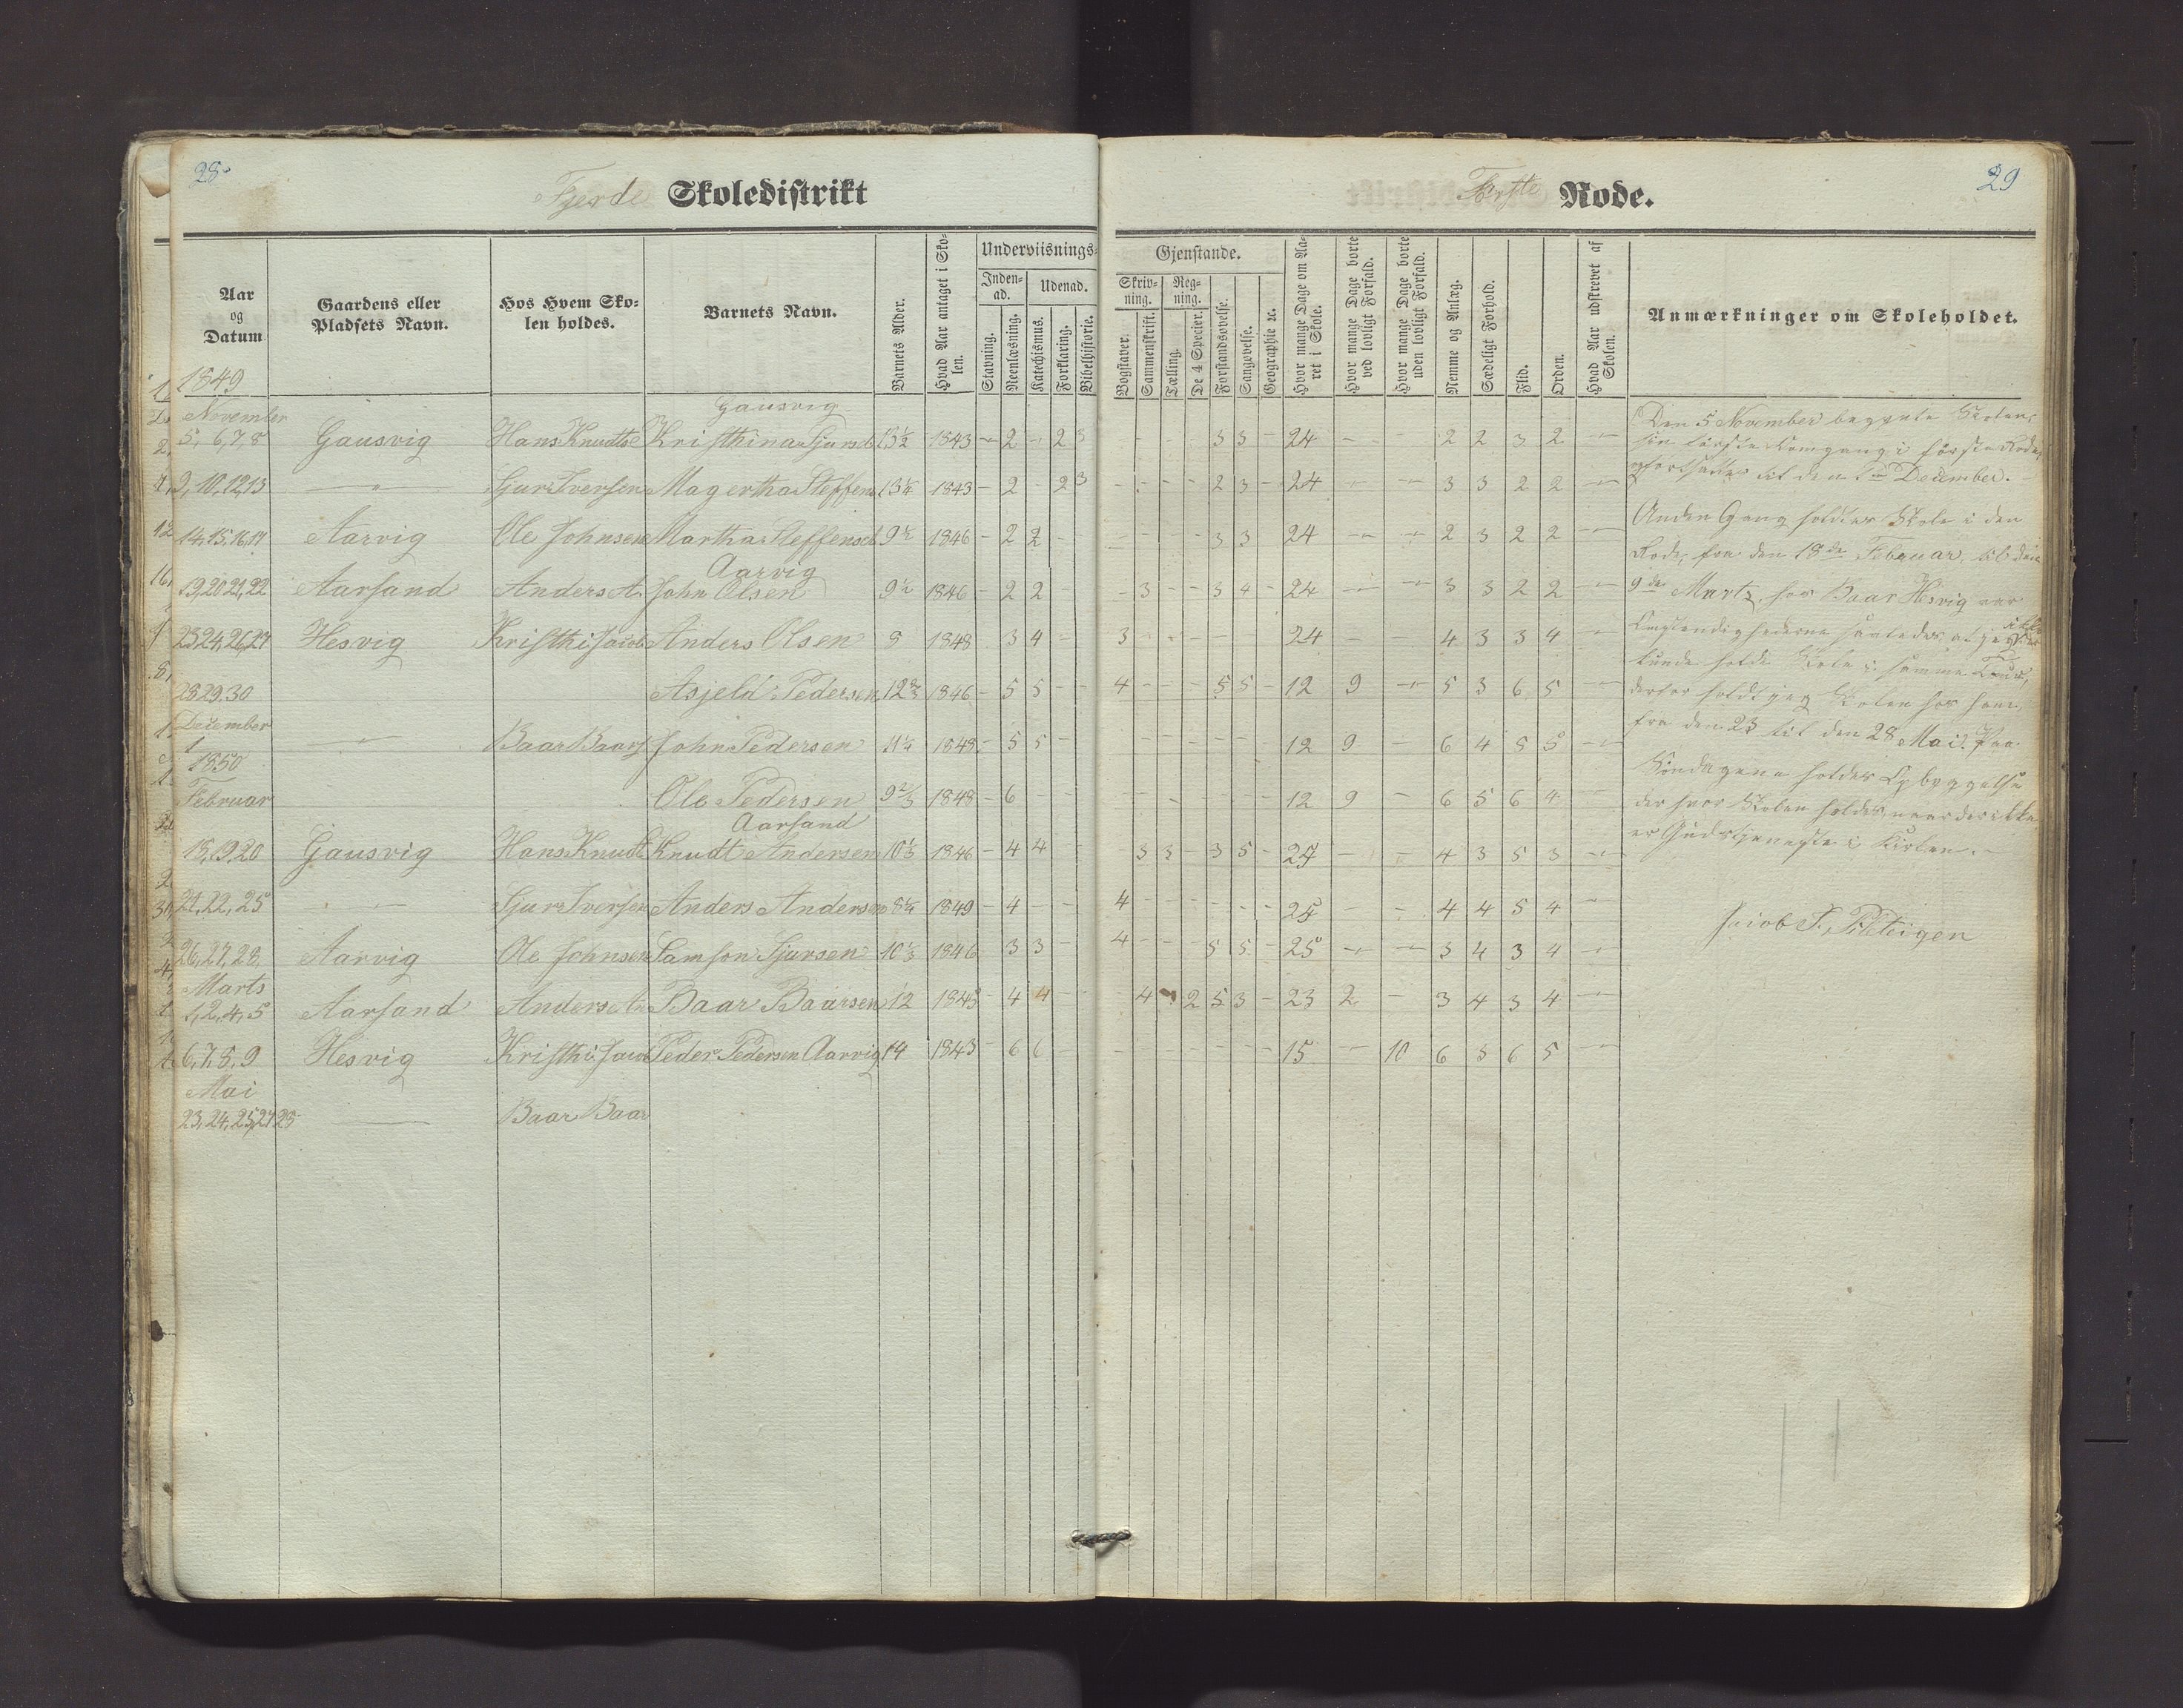 28
Fjerde Skoledistrikt
Aar og Datum
Gaardens eller Pladsets Navn.
Hos Hvem Skolen holdes.
Barnets Navn.
Barnets Alder.
Hvad Aar antaget i Skolen.
Underviisnings-
Indenad.
Udenad.
Stavning.
Reenlæsning.
Katechismus.
Forklaring.
Bibelhistorie.
1849
November
Gausvig
5, 6, 7, 8 Gausvig Hans Knudts Kristhina Sjursd 13½ 1843 - 2 - 2 3
9, 10, 12, 13 —"— Sjur Iversen Magertha Steffens 13¼ 1843 - 2 - 2 3
14, 15, 16, 17 Aarvig Ole Johnsen Martha Steffensd 9½ 1846 - 2 2 -
Aarvig
19, 20, 21, 22 Aarsand Anders A. John Olsen 9½ 1846 - 2 2 -
23, 24, 26, 27 Hesvig Kristhi Jacob Anders Olsen 8 1848 3 4 -
28, 29, 30 Asjeld Pedersen 12⅔ 1846 - 5 5 - -
December
1 —"— Baar Baars John Pedersen 11¼ 1848 - 5 5 - -
1850
Februar Ole Pedersen 9⅔ 1848 - 6 - - -
Aarsand
18, 19, 20 Gausvig Hans Knudts Knudt Andersen 10⅓ 1846 - 4 4 - -
21, 22, 25 —"— Sjur Iversen Anders Andersen 8¼ 1849 - 4 - -
26, 27, 28 Aarvig Ole Johnsen Samson Sjursen 10⅓ 1846 3 3 -
Marts
1, 2, 4, 5 Aarsand Anders An Baar Baarsen 12 1845 - 4 4 - -
6, 7, 8, 9 Hesvig Kristhi Jacob Peder Pedersen Aarvig 14 1843 - 6 6 -
Mai
23, 24, 25, 27 28 — Baar Baar
29
Første Rode.
Gjenstande.
Skrivning.
Regning.
Bogstaver.
Sammenskrift.
Tælling.
De 4 Specier.
Forstandsøvelse.
Sangøvelse.
Geographie ic.
Hvor mange Dage om Aaret i Skole.
Hvor mange Dage borte ved lovligt Forfald.
Hvor mange Dage borte uden lovligt Forfald.
Nemme og Anlæg.
Sædeligt Forhold.
Flid.
Orden.
Hvad Aar udskrevet af Skolen.
Anmærkninger om Skoleholdet.
- - - - 3 3 - 24 - - 2 2 3 2 -
- - - - 2 3 - 24 - - 3 3 2 2 -
- - - - 3 3 24 - - 2 3 2 2 -
- 3 - - 3 4 - 24 - - 3 3 2 2 -
3 - - - - - 24 - - 4 3 3 4 -
4 - - - 5 5 - 12 9 - 5 3 6 5 -
- - - - - - - 12 9 - 6 4 5 5 -
- - - - - - - 12 9 - 6 5 6 4
- 3 3 - 3 5 - 25 - - 4 3 5 3 -
4 - - - - - - 25 - - 4 4 5 4 -
4 - - - 5 5 - 25 - - 3 4 3 4 -
- 4 2 5 3 - 23 2 - 3 4 3 4 -
- - - - - - - 15 - 10 6 5 6 5 -
Den 5 November begynte Skolen
sin første Omgang i første Rode,
og fortsattes til den 1ste December.
Anden Gang holdtes Skole i den
Rode, fra den 18de Februar, til den
9de Marts, hos Baar Hesvig var
Omstendighederne saaledes at jeg ikke
kunde holde Skole i samme
derfor holdt jeg Skolen hos ham
fra den 23 til den 28 Mai. Paa
Søndagene holdes Opbyggelse
der hvor Skolen holdes, naar der ikke
er Gudstjeneste i Kirken. -
Jacob